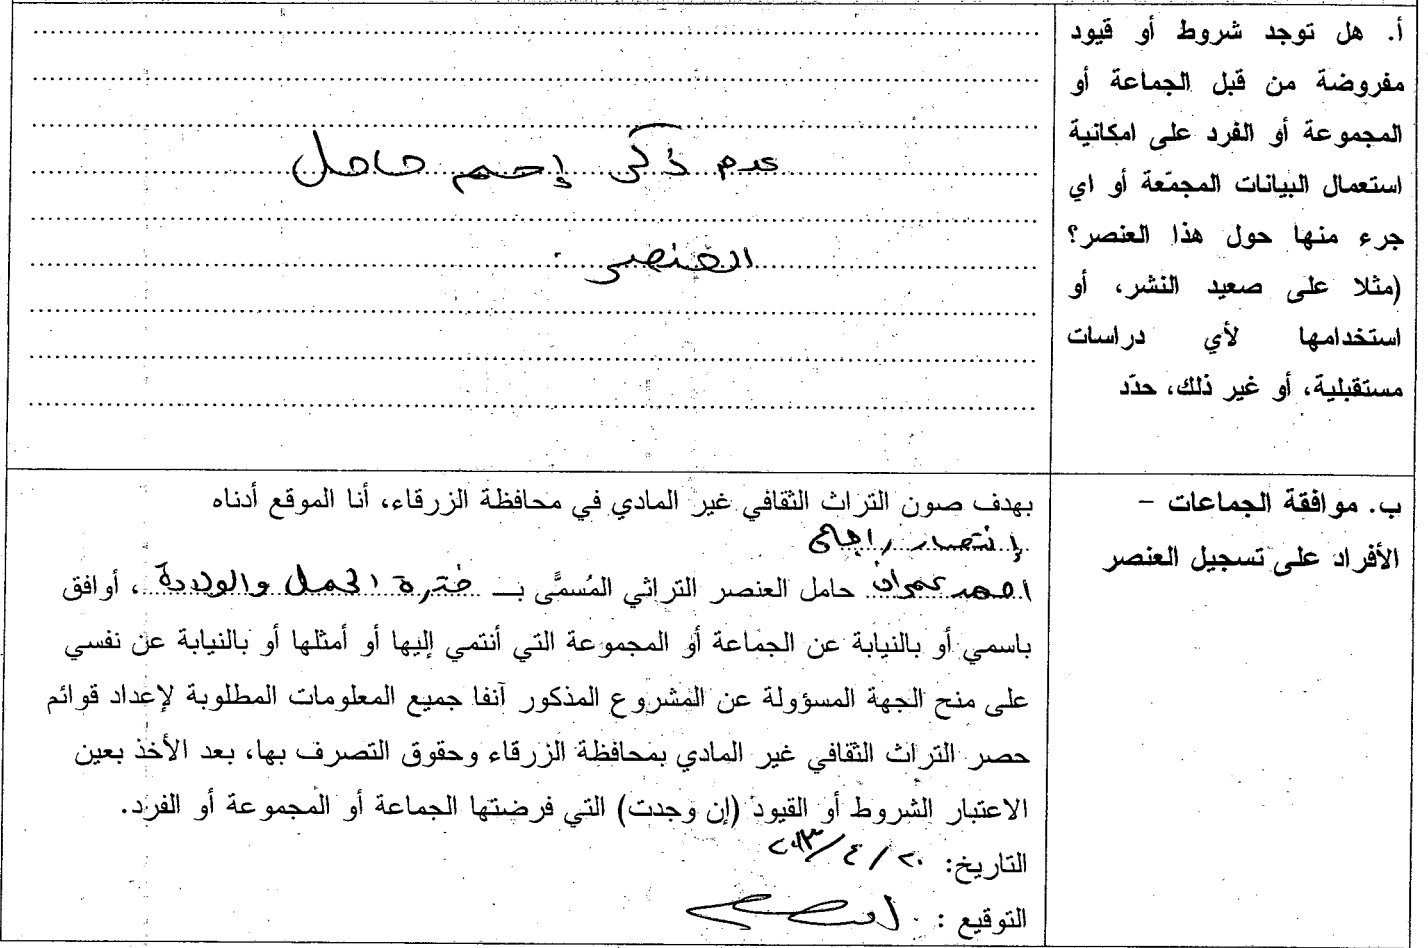 أ. هل توجد شروط أو قيود
مفروضة من قبل الجماعة أو
المجموعة أو الفرد على امكانية
استعمال البيانات المجمّعة أو اي
جرء منها حول هذا العنصر؟
(مثلا على صعيد النشر، أو
استخدامها لأي دراسات
مستقبلية، أو غير ذلك، حدّد
عدم ذكر إسم حامل
العنصر .
ب. موافقة الجماعات –
الأفراد على تسجيل العنصر
بهدف صون التراث الثقافي غير المادي في محافظة الزرقاء، أنا الموقع أدناه
إنتصار راجي
احمد عمران حامل العنصر التراثي المُسمَّى بـ فترة الحمل والولادة ، أوافق
باسمي أو بالنيابة عن الجماعة أو المجموعة التي أنتمي إليها أو أمثلها أو بالنيابة عن نفسي
على منح الجهة المسؤولة عن المشروع المذكور آنفا جميع المعلومات المطلوبة لإعداد قوائم
حصر التراث الثقافي غير المادي بمحافظة الزرقاء وحقوق التصرف بها، بعد الأخذ بعين
الاعتبار الشروط أو القيود (إن وجدت) التي فرضتها الجماعة أو المجموعة أو الفرد.
التاريخ: ٢٠ / ٤ / ٢٠١٣
التوقيع :